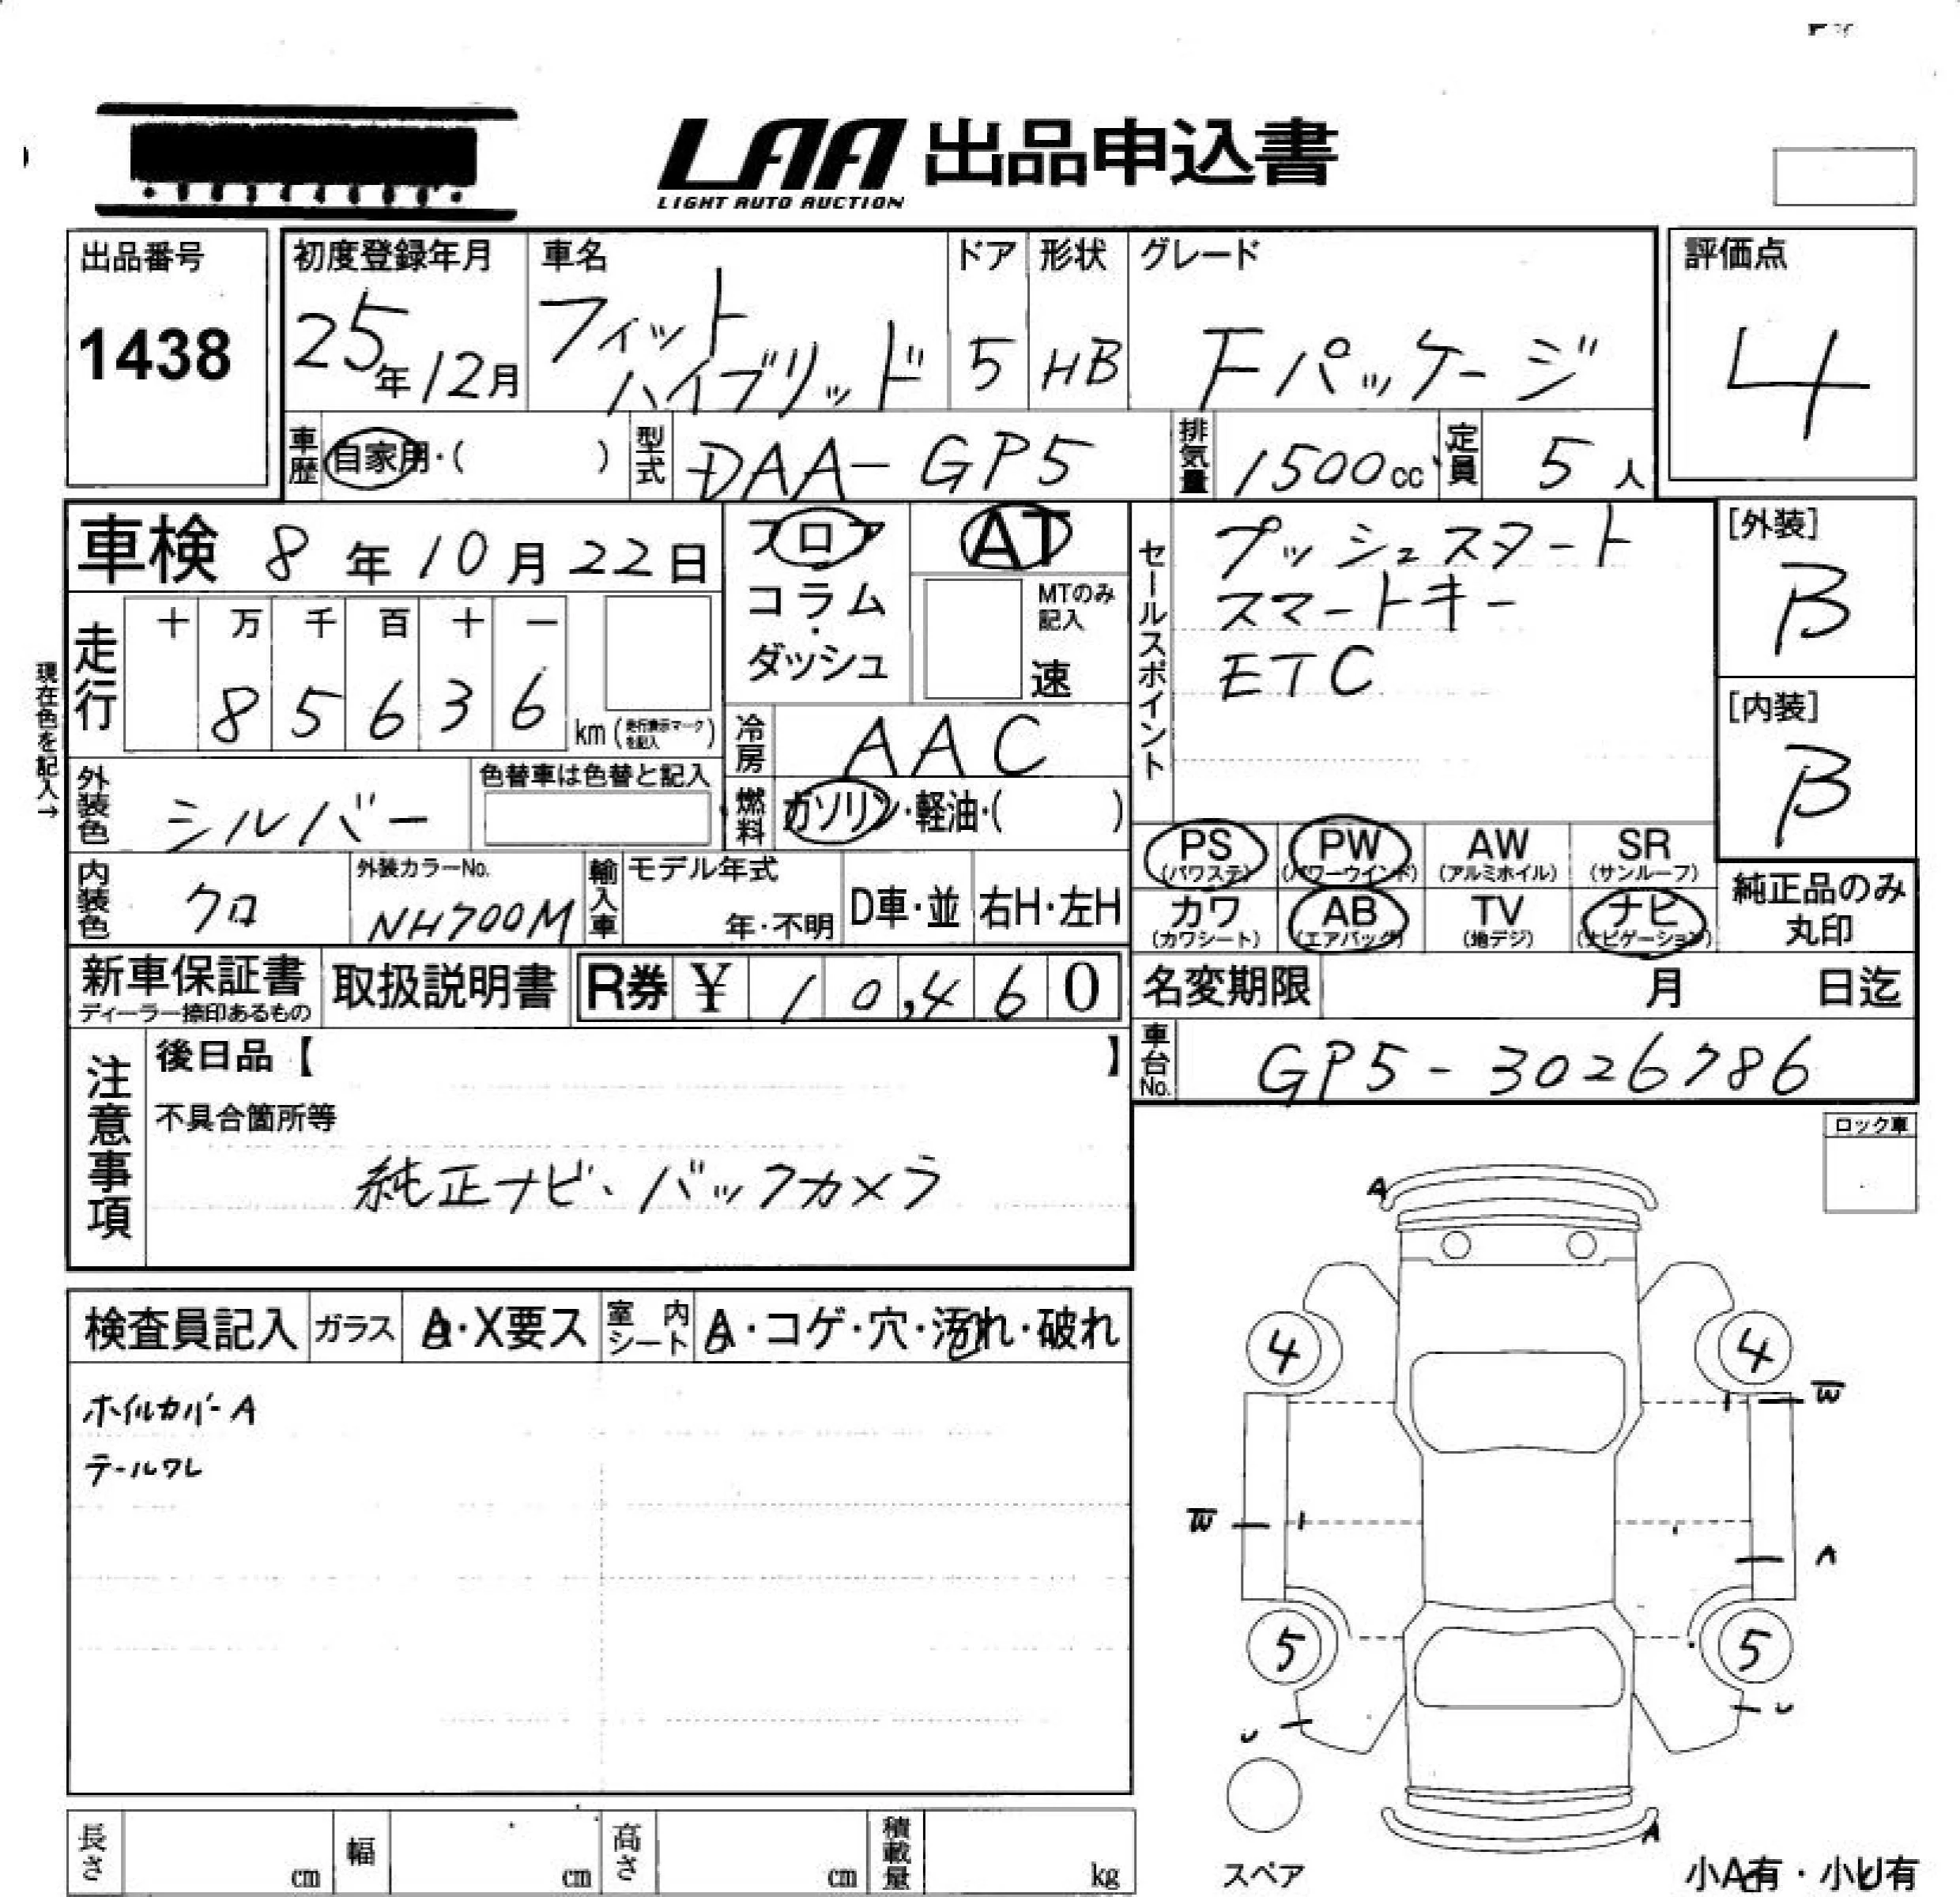 LAA 出品申込書
LIGHT AUTO AUCTION
出品番号
1438
初度登録年月
25年12月
車名
フィット
ハイブリッド
ドア
5
形状
HB
グレード
Fパッケージ
評価点
4
車歴 自家用・( )
型式 DAA-GP5
排気量 1500cc
定員 5人
車検 8年10月22日
フロア
コラム
・
ダッシュ
AT
MTのみ
記入
速
セールスポイント
プッシュスタート
スマートキー
ETC
[外装]
B
[内装]
B
現在色を記入→
走行
十 万 千 百 十 一
8 5 6 3 6
km(走行表示マークを記入)
冷房 AAC
外装色 シルバー
色替車は色替と記入
燃料 ガソリン・軽油・( )
PS (パワステ)
PW (パワーウインド)
AW (アルミホイル)
SR (サンルーフ)
カワ (カワシート)
AB (エアバッグ)
TV (地デジ)
ナビ (ナビゲーション)
純正品のみ
丸印
内装色 クロ
外装カラーNo.
NH700M
輸入車
モデル年式
年・不明
D車・並
右H・左H
新車保証書
ディーラー捺印あるもの
取扱説明書
R券 ¥ 10,460
名変期限 月 日迄
車台No. GP5-3026786
注意事項
後日品【 】
不具合箇所等
純正ナビ、バックカメラ
ロック車
検査員記入
ガラス A・X要ス
室内シート A・コゲ・穴・汚れ・破れ
ホイルカバーA
テールワレ
A
4 4
W
W
A
5 5
U U
A
スペア
小A有・小U有
長さ cm
幅 cm
高さ cm
積載量 kg